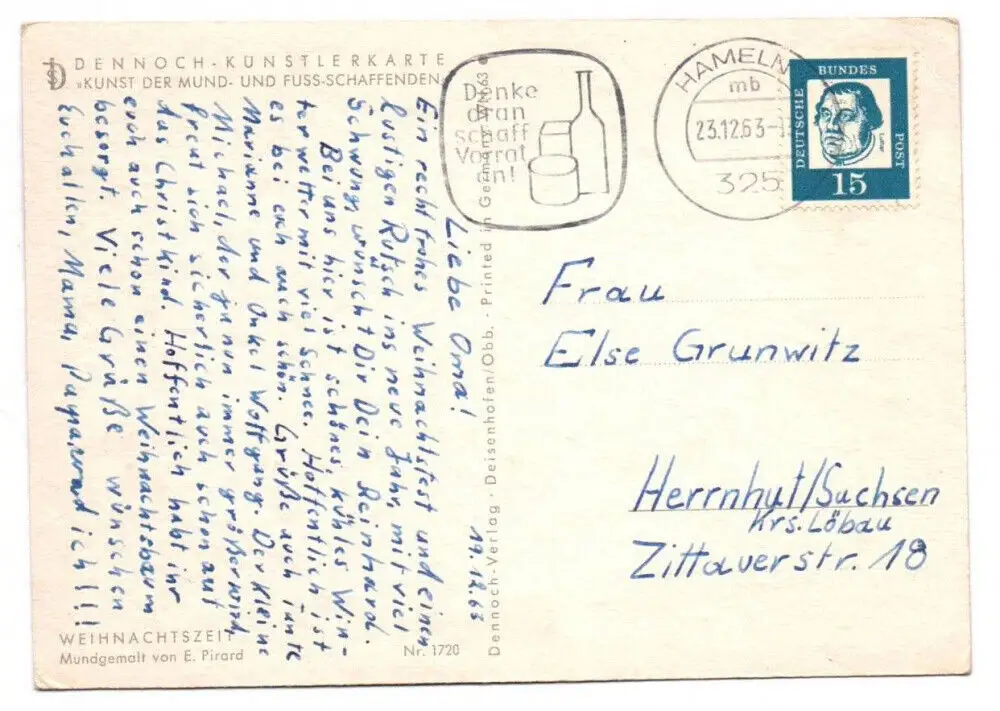 DENNOCH-KÜNSTLERKARTE
»KUNST DER MUND- UND FUSS-SCHAFFENDEN«
Liebe Oma!
Ein recht frohes Weihnachtsfest und einen
lustigen Rutsch ins neue Jahr, mit viel
Schwung, wünscht Dir Dein Reinhard.
Bei uns hier ist schönes, kühles Win-
terwetter mit viel Schnee. Hoffentlich ist
es bei euch auch schön. Grüße auch Tante
Marianne und Onkel Wolfgang. Der kleine
Michael, der ja nun immer größer wird
freut sich sicherlich auch schon auf
das Christkind. Hoffentlich habt ihr
euch auch schon einen Weihnachtsbaum
besorgt. Viele Grüße wünschen
Euch allen, Mama, Papa, und ich!!!
19.12.63
WEIHNACHTSZEIT
Mundgemalt von E. Pirard
Nr. 1720
Dennoch-Verlag · Deisenhofen/Obb. · Printed in Germany WN 63
Denke
dran
schaff
Vorrat
an!
HAMELN
mb
23.12.63
325
DEUTSCHE
BUNDES
POST
Luther
15
Frau
Else Grunwitz
Herrnhut/Sachsen
Krs. Löbau
Zittauerstr. 18